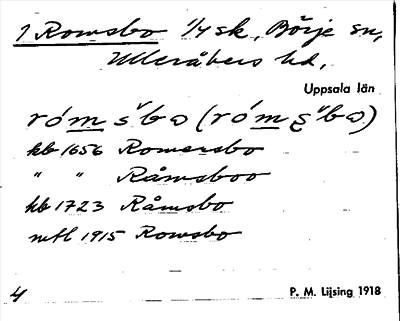 1 Romsbo 1/4 sk, Börje sn,
Ulleråkers hd,
Uppsala län
róm s̆bɷ (róm ʂ̆bɷ)
kb 1656 Romersbo
" " Råmsboo
kb 1723 Råmsbo
mtl 1915 Romsbo
4 P. M. Lijsing 1918